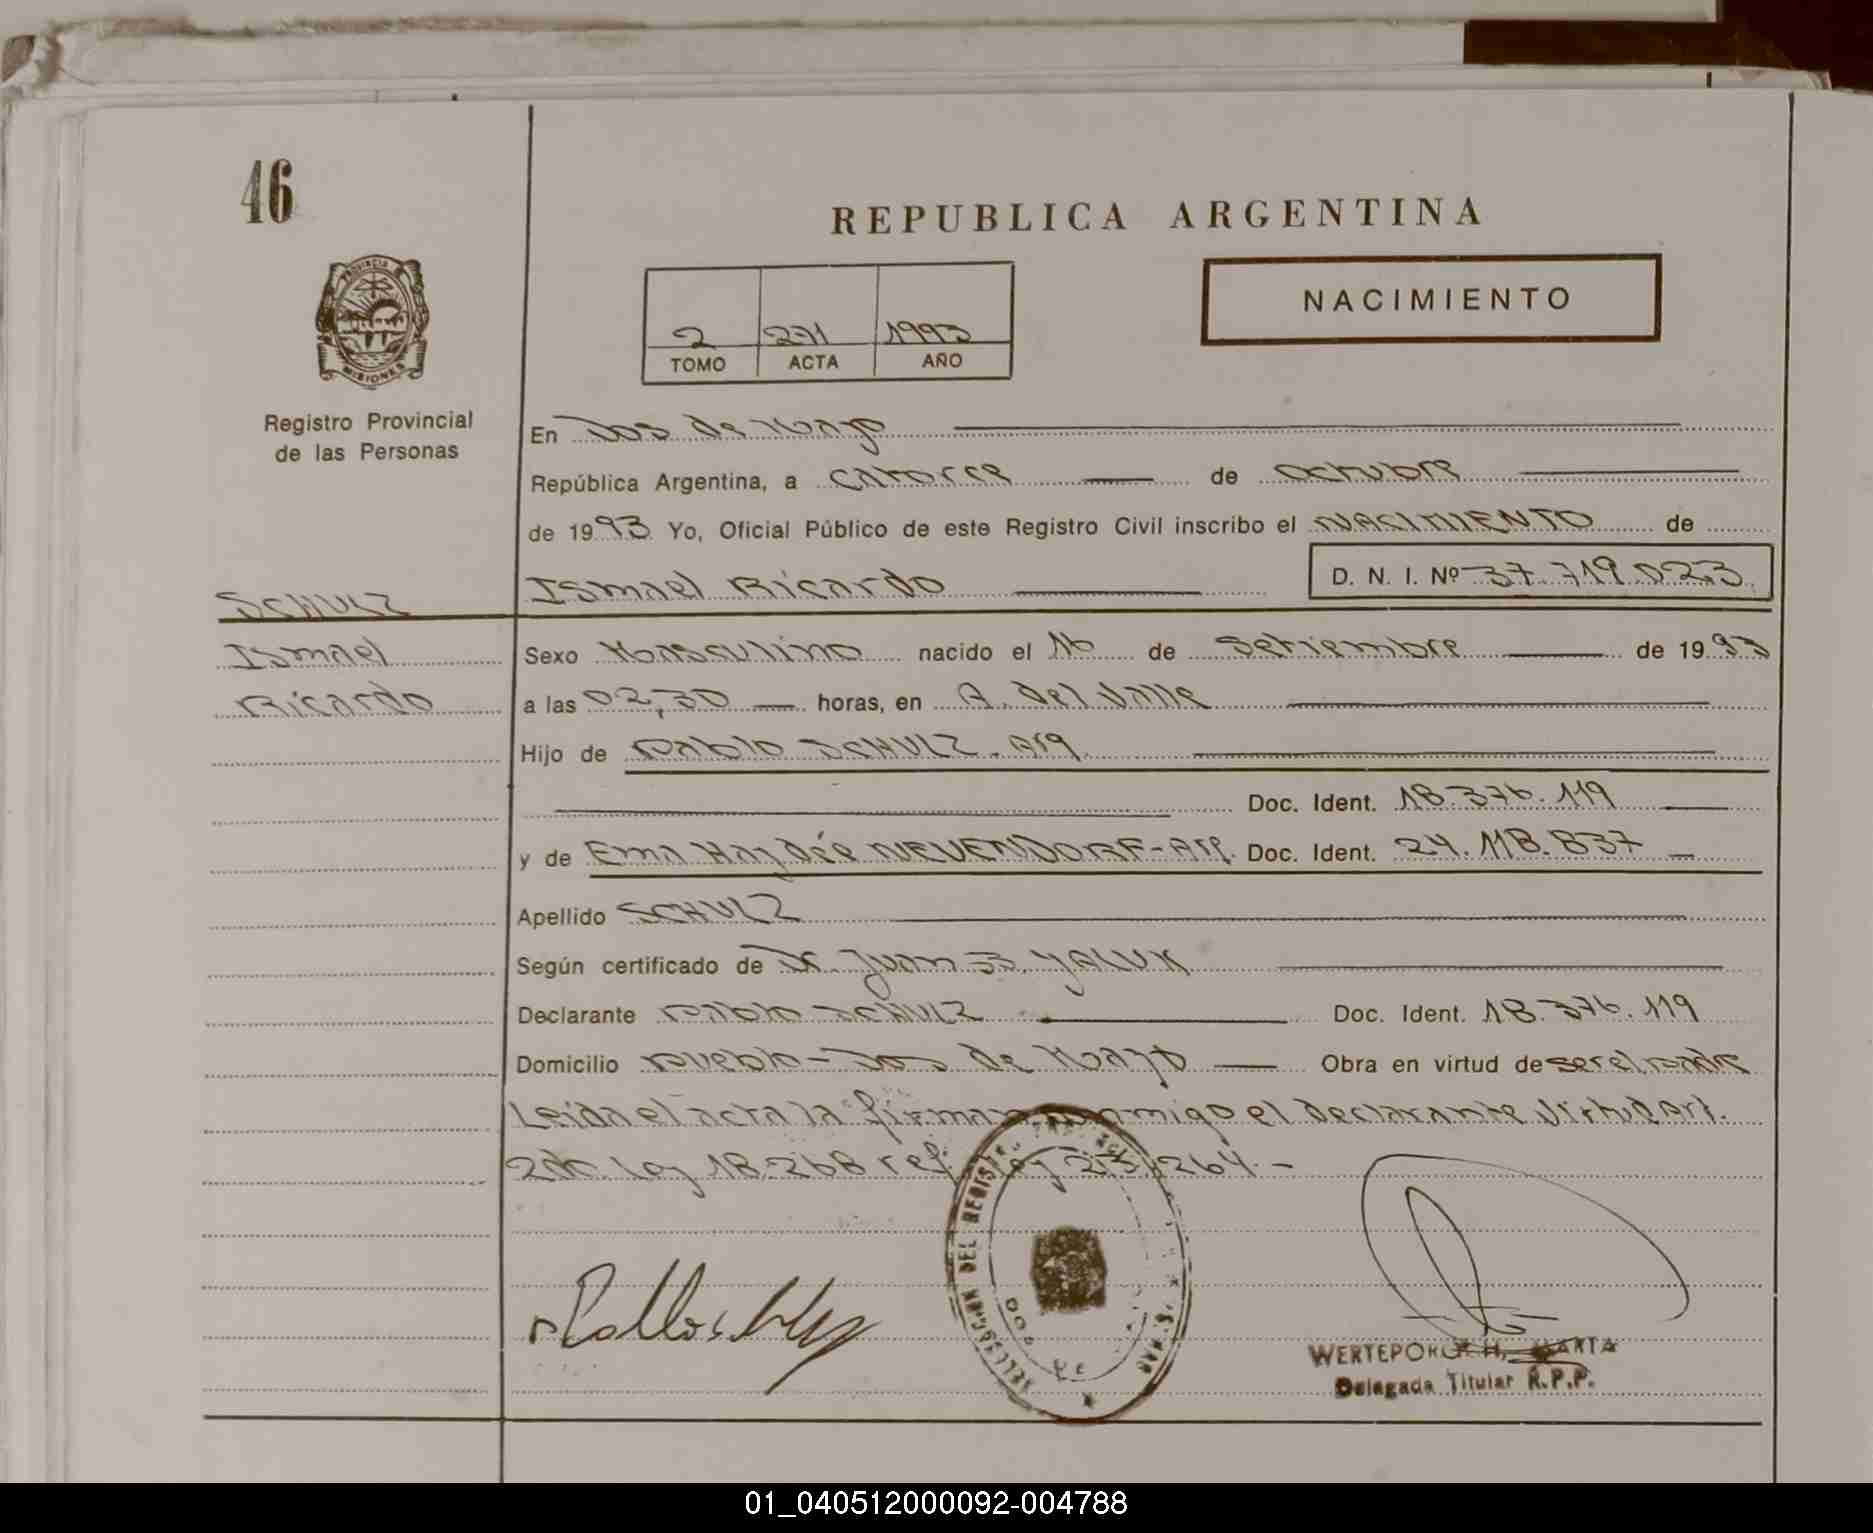 46
REPUBLICA ARGENTINA
PROVINCIA DE
MISIONES
NACIMIENTO
2 271 1993
TOMO ACTA AÑO
Registro Provincial
de las Personas
En Dos de Mayo
República Argentina, a catorce de octubre
de 1993 Yo, Oficial Público de este Registro Civil inscribo el NACIMIENTO de
Ismael Ricardo D. N. I. Nº 37.719.023
SCHULZ
Ismael
Ricardo
Sexo Masculino nacido el 16 de Setiembre de 1993
a las 02,30 horas, en A. del Valle
Hijo de Pablo SCHULZ. Arg.
Doc. Ident. 18.376.119
y de Ema Haydée NEUENDORF-Arg. Doc. Ident. 24.118.837
Apellido SCHULZ
Según certificado de Dr. Juan B. YALUK
Declarante Pablo SCHULZ Doc. Ident. 18.376.119
Domicilio Pueblo-Dos de Mayo Obra en virtud de ser el padre
Leída el acta la firman conmigo el declarante virtud Art.
2do. Ley 18.268 ref. Ley 23.264.-
DELEGACION DEL REGISTRO
DOS DE
WERTEPOROCH, MARTA
Delegada Titular R.P.P.
01_040512000092-004788